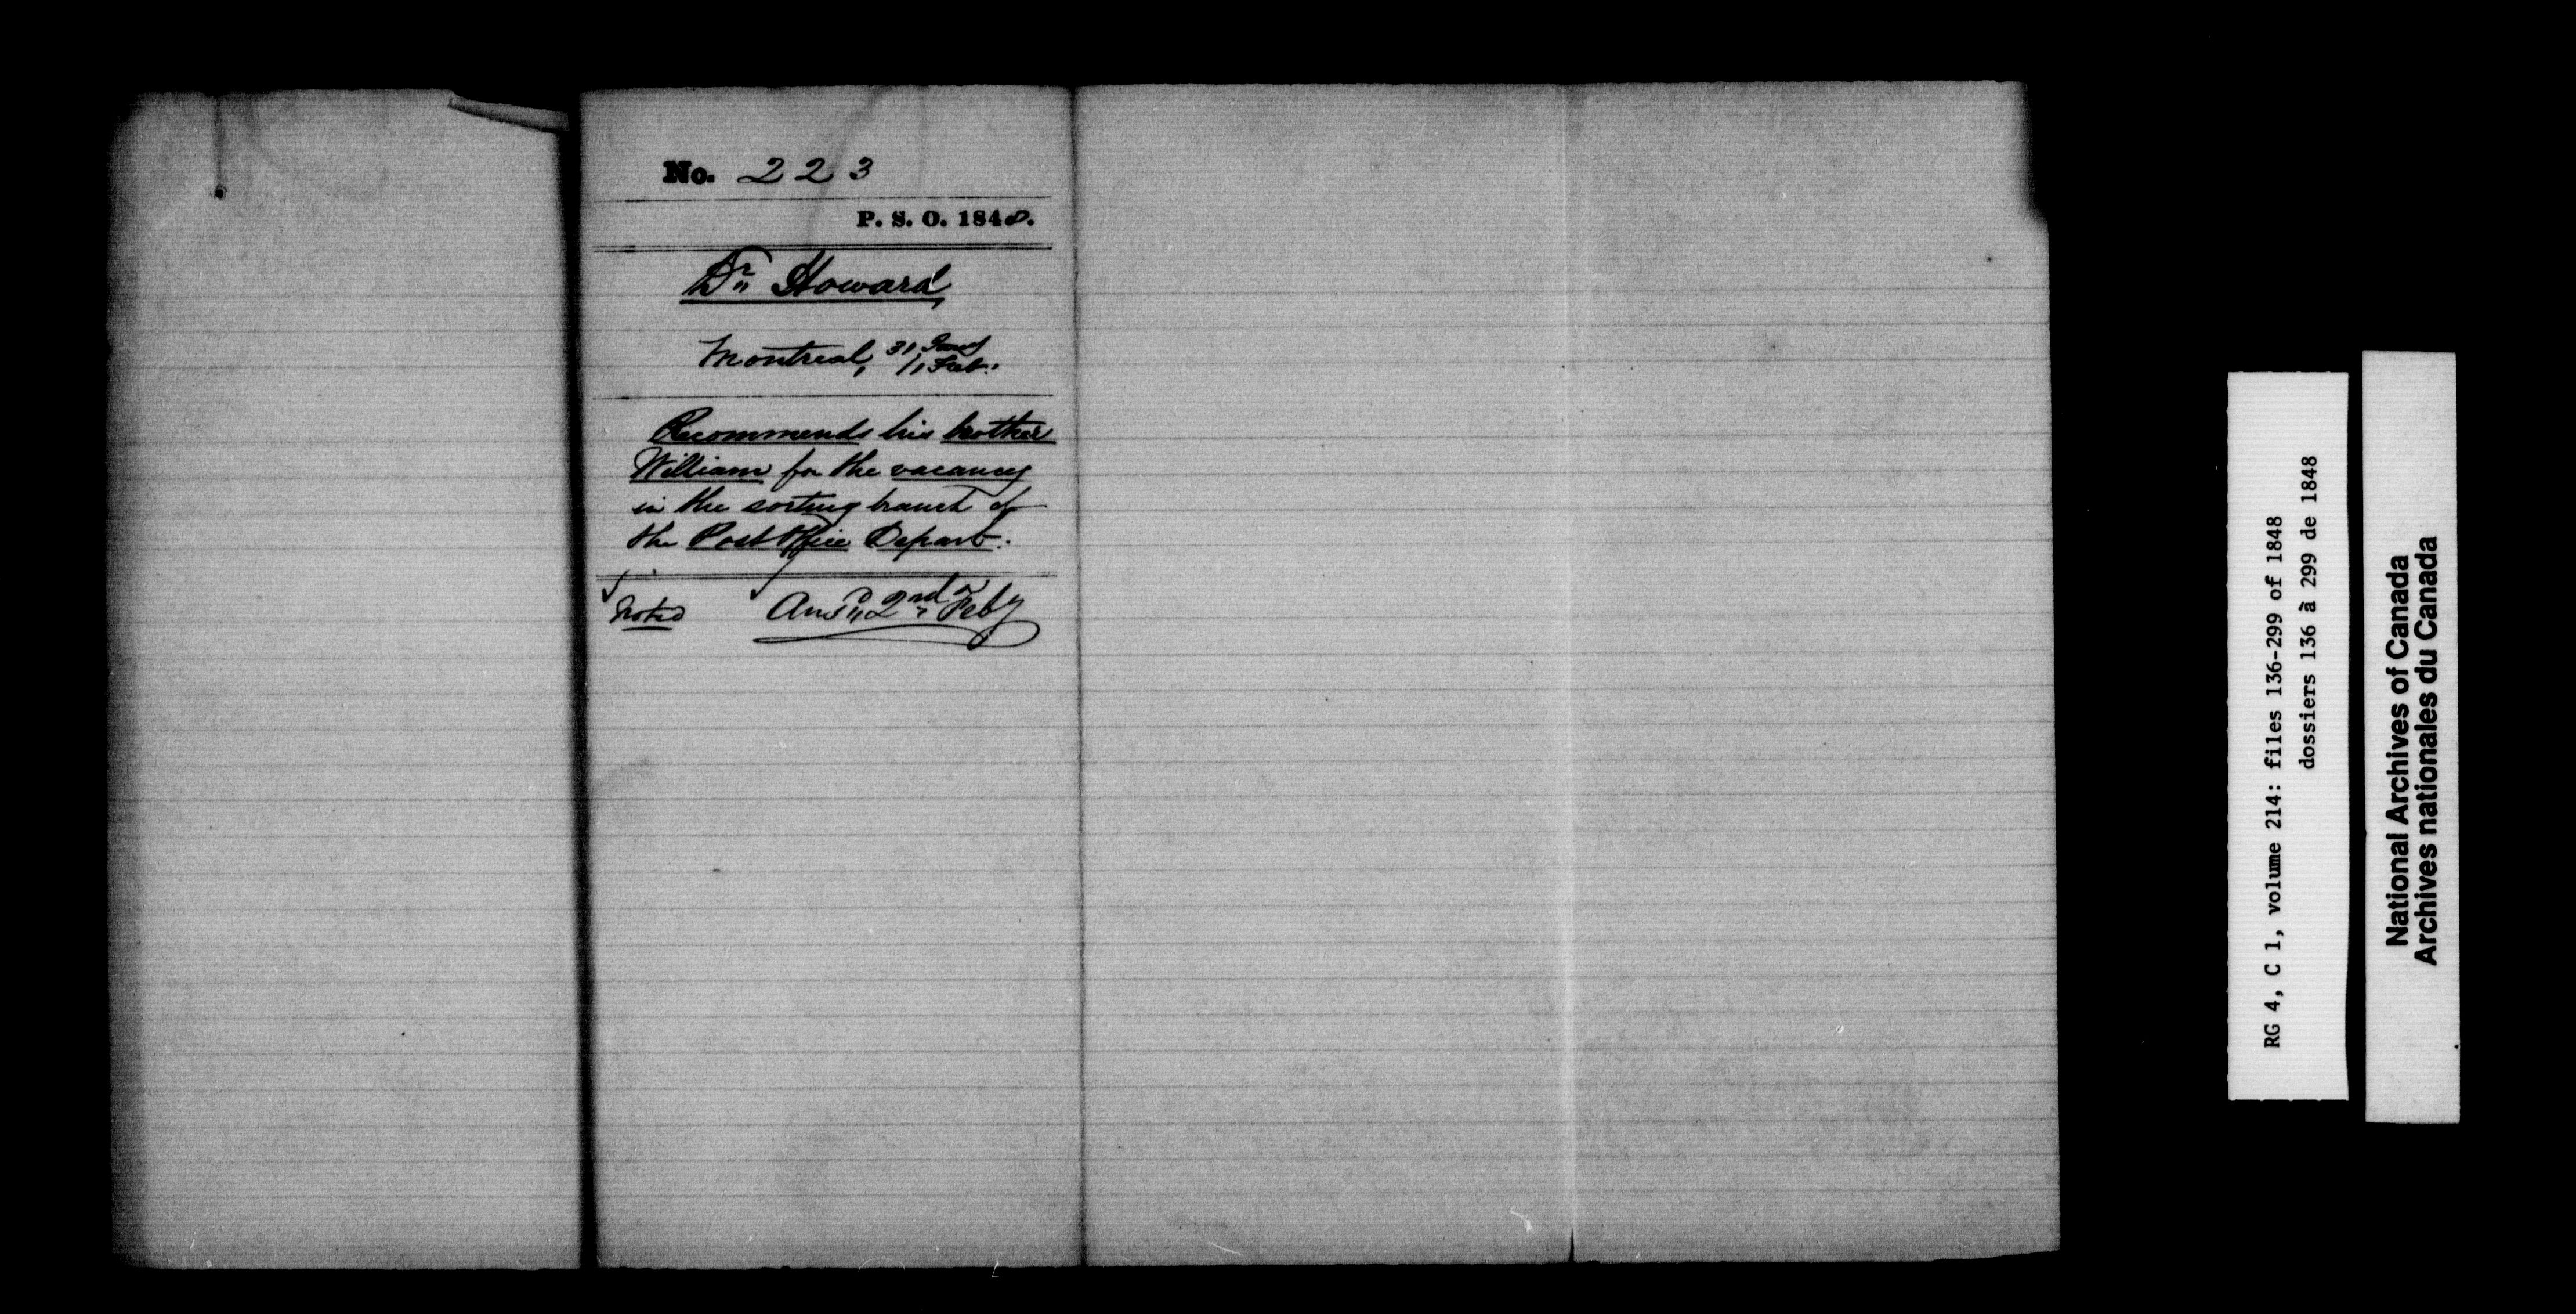 No. 223
P. S. O. 1848.
Dr Howard,
Montreal, 31 Jany
/1 Feb:
Recommends his brother
William for the vacancy
in the sorting branch of
the Post Office Depart:
Noted Ansd 2nd Feby
RG 4, C 1, volume 214: files 136-299 of 1848
dossiers 136 à 299 de 1848
National Archives of Canada
Archives nationales du Canada